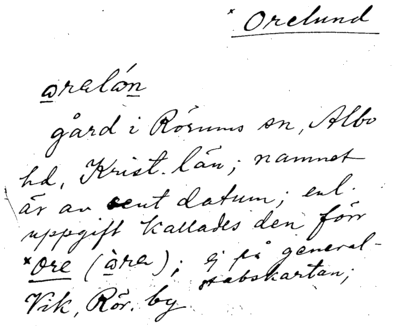 × Orelund
ɷrelón
gård i Rörums sn, Albo
hd, Krist. län; namnet
är av sent datum; enl.
uppgift kallades den förr
× Ore (ɷ̀re); ej på general-
stabskartan;
Vik, Rör. by